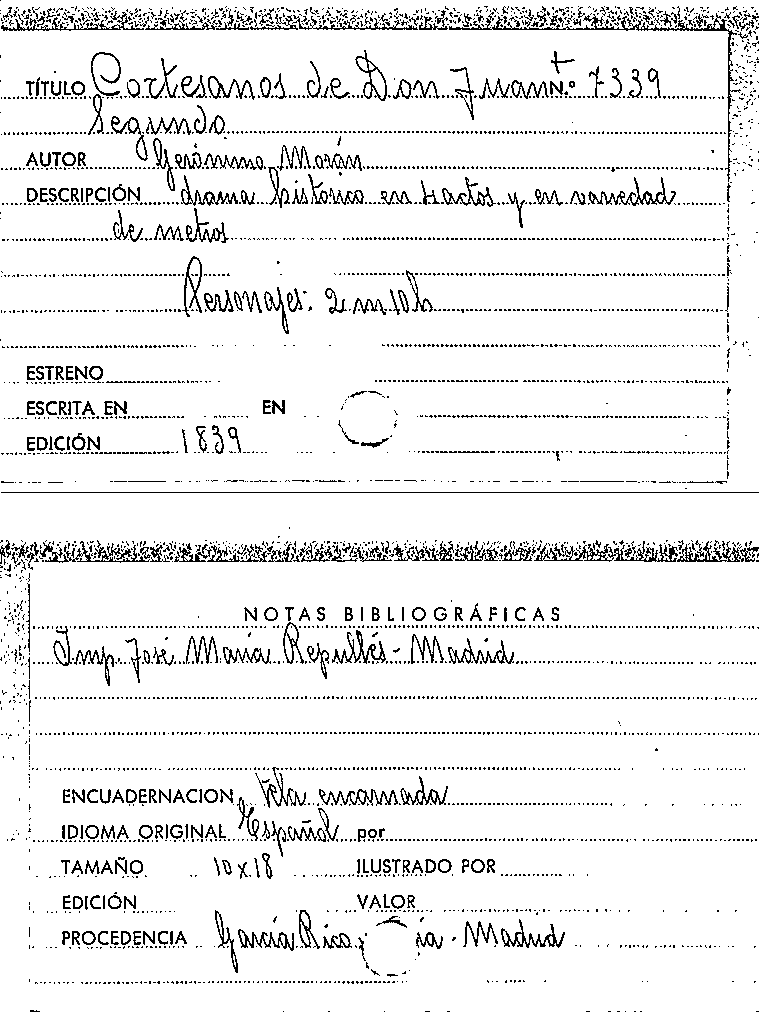 TÍTULO Cortesanos de Don Juan N.º 7339
Segundo
AUTOR Gerónimo Morán
DESCRIPCIÓN drama histórico en 4 actos y en variedad
de metros
Personajes: 2 m 10 h
ESTRENO
ESCRITA EN EN
EDICIÓN 1839
NOTAS BIBLIOGRÁFICAS
Imp. José María Repullés - Madrid
ENCUADERNACION Tela encarnada
IDIOMA ORIGINAL Español por
TAMAÑO 10 x 18 ILUSTRADO POR
EDICIÓN VALOR
PROCEDENCIA García Rico - Madrid